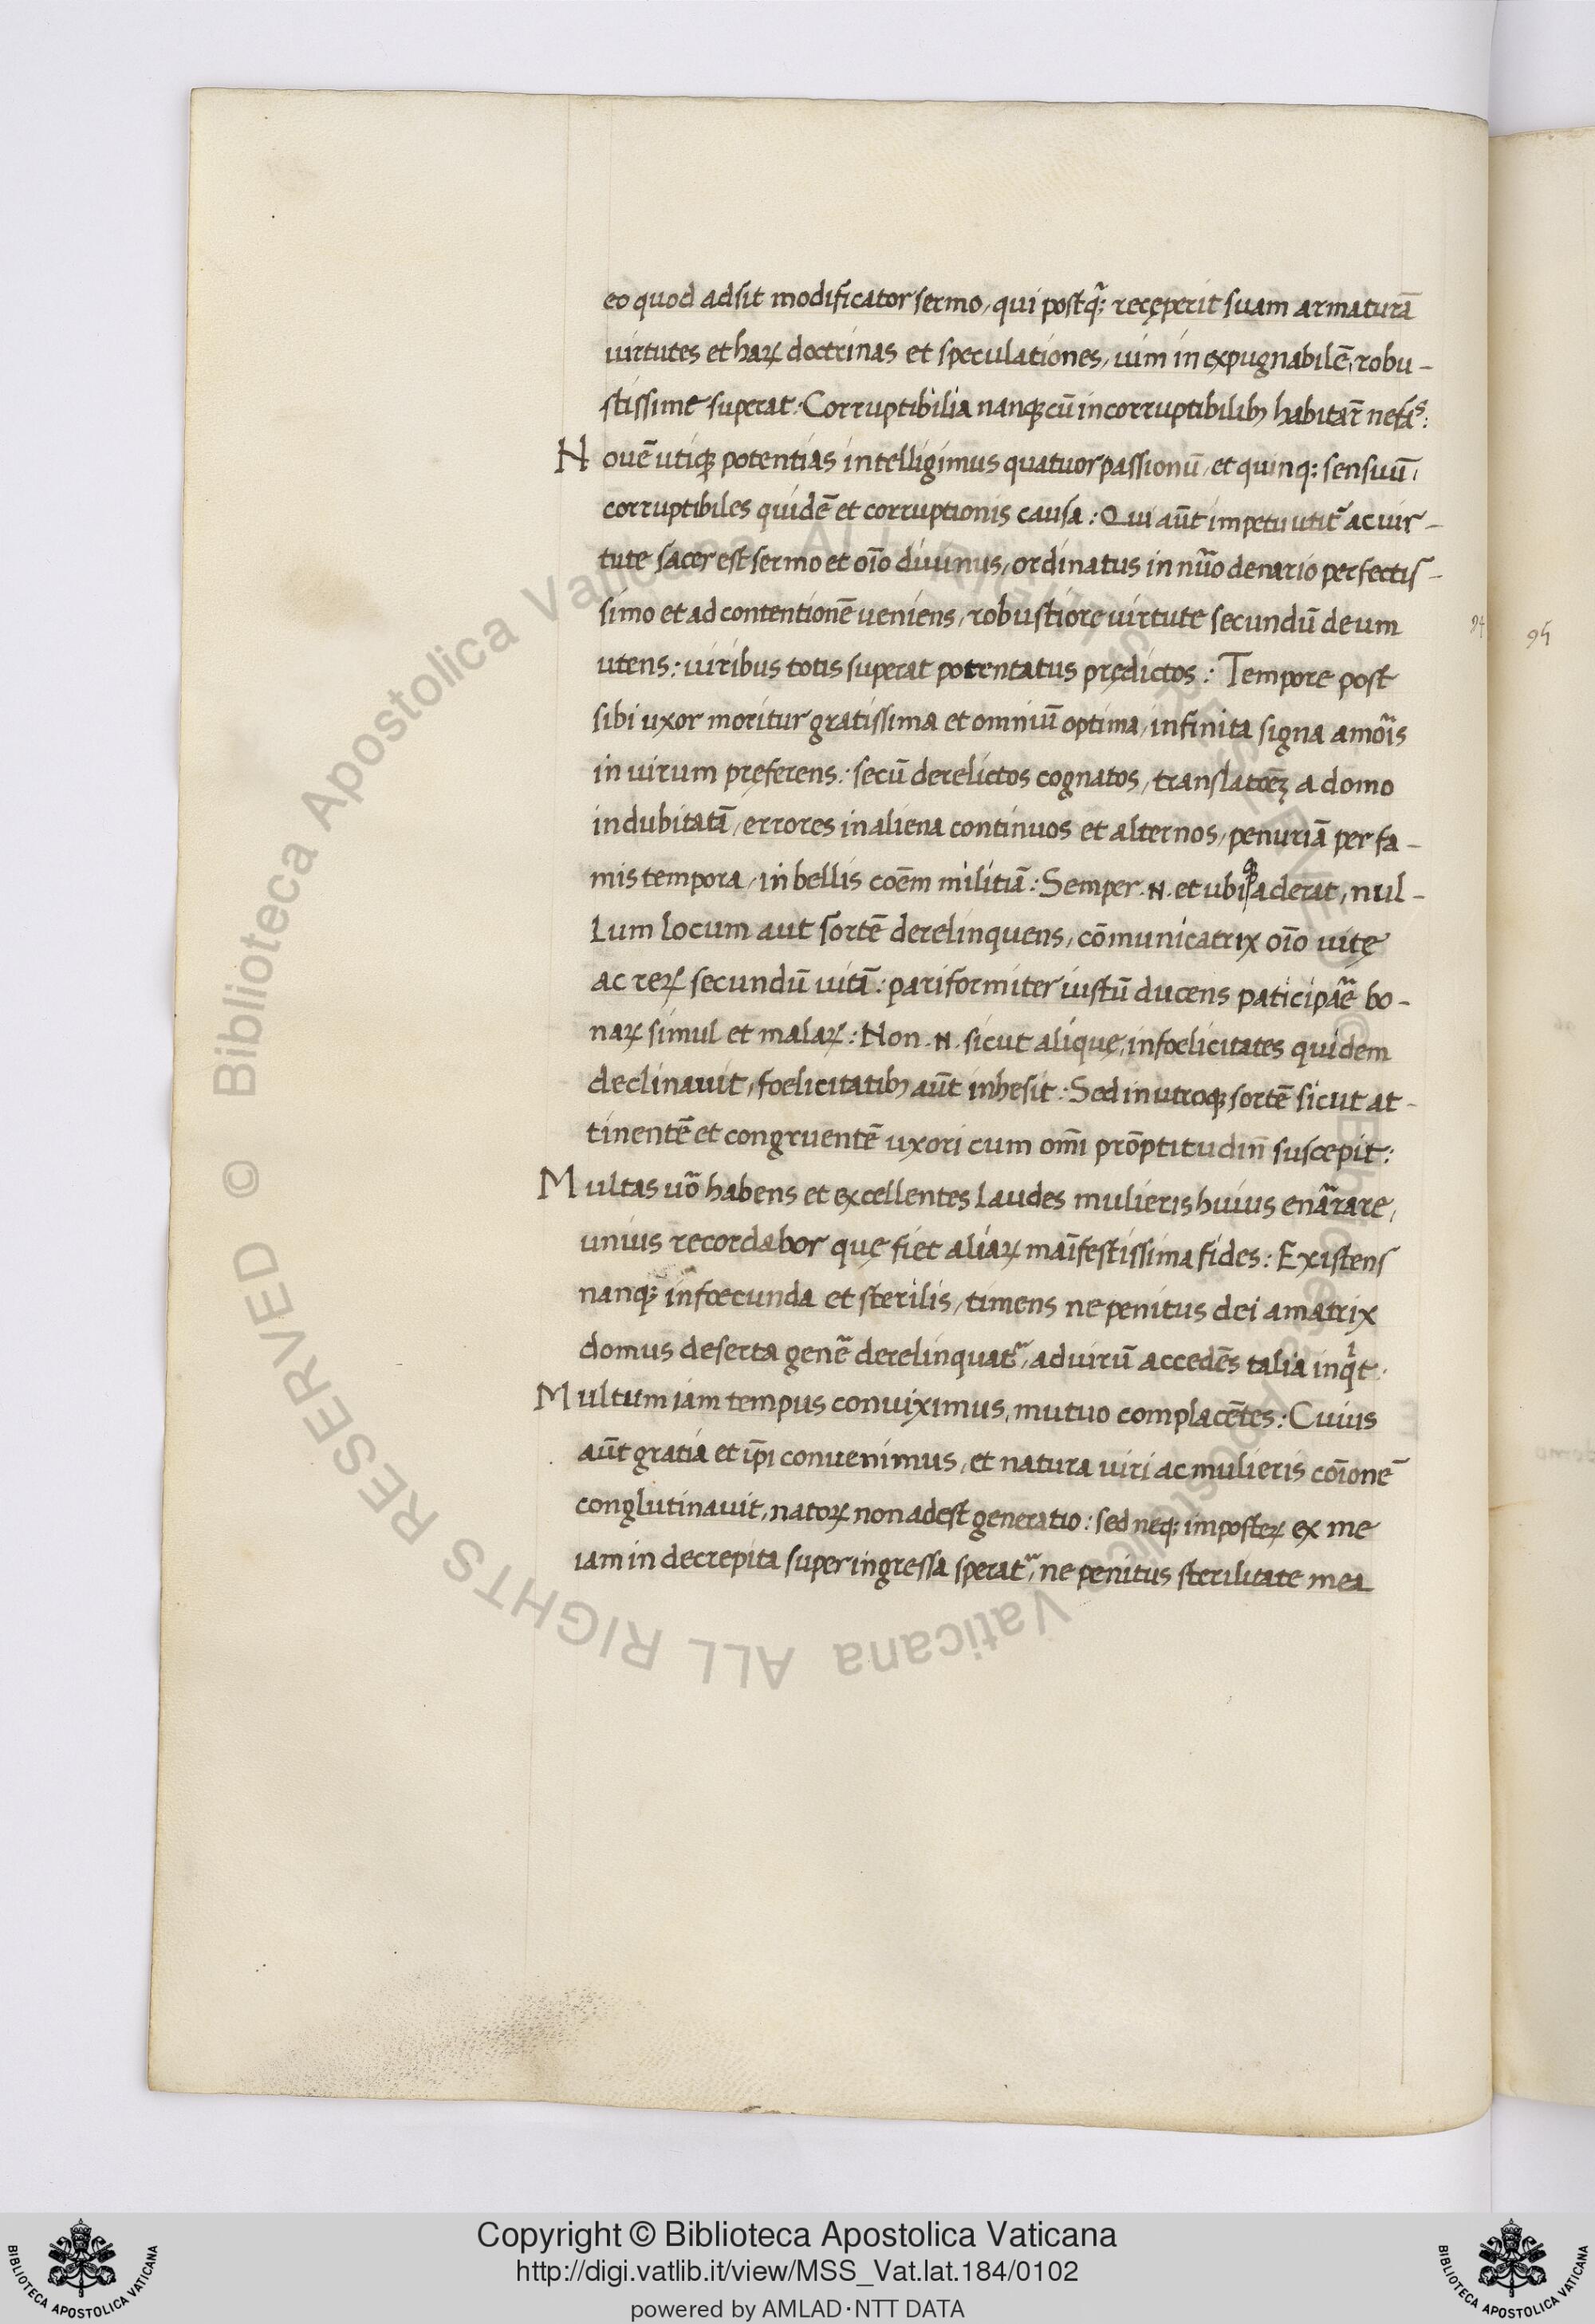 eo quod adsit modificator sermo, qui postq̃; recęperit suam armaturā
uirtutes et haꝝ doctrinas et speculationes, uim inexpugnabilē, robu-
stissime superat: Corruptibilia nanqꝫ cū incorruptibilibꝫ habitar̄ nefas:
Nouē utiqꝫ potentias intelligimus quatuor passionū, et quinq; sensuū,
corruptibiles quidē et corruptionis causa: Qui aūt impetu utit᷑ ac uir-
tute sacer est sermo et oīo diuinus, ordinatus in nūo denario perfectis-
simo et ad contentionē ueniens, robustiorę uirtute secundū deum
utens: uiribus totis superat potentatus prędictos: Tempore post
sibi uxor moritur gratissima et omniū optima, infinita signa amōis
in uirum pręferens: secū derelictos cognatos, translatōēꝫ a domo
indubitatā, errores in aliena continuos et alternos, penuriā per fa-
mis tempora, in bellis coēm militiā: Semper .n. et ubiqꝫ aderat, nul-
lum locum aut sortē derelinquens, cōmunicatrix oīo uitę
ac reꝝ secundū uitā: pariformiter iustū ducens paticipāe bo-
naꝝ simul et malaꝝ: Non .n. sicut aliquę, infoelicitates quidem
declinauit, foelicitatibꝫ aūt inhesit: Sed in utroqꝫ sortē sicut at-
tinentē et congruentē uxori cum om̄i prōptitudin̄ suscepit:
Multas uō habens et excellentes laudes mulieris huius enārare,
unius recordabor quę fiet aliaꝝ māifestissima fides: Existens
nanq; infoecunda et sterilis, timens ne penitus dei amatrix
domus deserta genē derelinquat᷑, ad uirū accedēs talia inqͥt:
Multum iam tempus conuiximus, mutuo complacētes: Cuius
aūt gratia et ip̄i conuenimus, et natura uiri ac mulieris cōīonē
conglutinauit, natoꝝ non adest generatio: sed neq; imposteꝝ ex me
iam in decrepita superingressa sperat᷑, ne penitus sterilitate mea
94
95
© Biblioteca Apostolica Vaticana ALL RIGHTS RESERVED
Copyright © Biblioteca Apostolica Vaticana
http://digi.vatlib.it/view/MSS_Vat.lat.184/0102
powered by AMLAD·NTT DATA
BIBLIOTECA APOSTOLICA VATICANA
BIBLIOTECA APOSTOLICA VATICANA